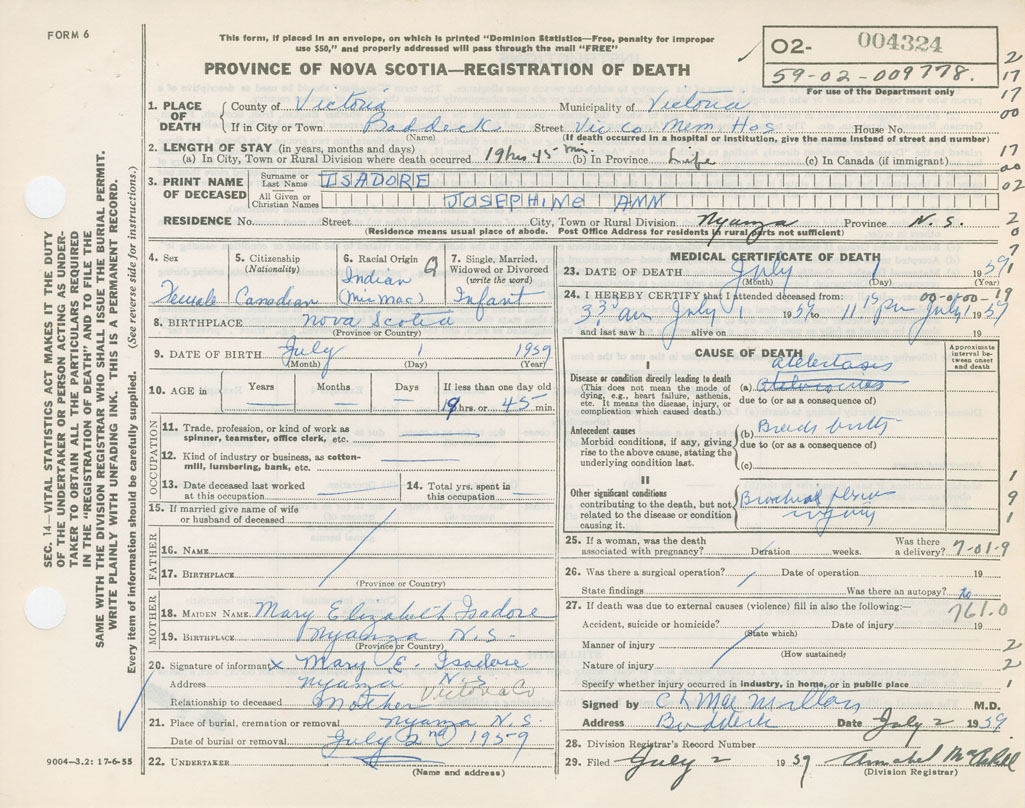 FORM 6
This form, if placed in an envelope, on which is printed "Dominion Statistics—Free, penalty for improper
use $50," and properly addressed will pass through the mail "FREE"
PROVINCE OF NOVA SCOTIA—REGISTRATION OF DEATH
02- 004324
59-02-009778.
For use of the Department only
SEC. 14—VITAL STATISTICS ACT MAKES IT THE DUTY
OF THE UNDERTAKER OR PERSON ACTING AS UNDER-
TAKER TO OBTAIN ALL THE PARTICULARS REQUIRED
IN THE "REGISTRATION OF DEATH" AND TO FILE THE
SAME WITH THE DIVISION REGISTRAR WHO SHALL ISSUE THE BURIAL PERMIT.
WRITE PLAINLY WITH UNFADING INK. THIS IS A PERMANENT RECORD.
Every item of Information should be carefully supplied. (See reverse side for instructions.)
1. PLACE OF DEATH County of Victoria Municipality of Victoria
If in City or Town Baddeck Street Vic Co Mem. Hos House No.
(Name) (If death occurred in a hospital or institution, give the name instead of street and number)
2. LENGTH OF STAY (in years, months and days)
(a) In City, Town or Rural Division where death occurred 19 hrs 45 min. (b) In Province Life (c) In Canada (if immigrant)
3. PRINT NAME OF DECEASED Surname or Last Name ISADORE
All Given or Christian Names JOSEPHINE ANN
RESIDENCE No. Street City, Town or Rural Division Nyanza Province N. S.
(Residence means usual place of abode. Post Office Address for residents in rural parts not sufficient)
4. Sex Female
5. Citizenship (Nationality) Canadian
6. Racial Origin Indian (Mic Mac) 9
7. Single, Married, Widowed or Divorced (write the word) Infant
8. BIRTHPLACE Nova Scotia
(Province or Country)
9. DATE OF BIRTH July 1 1959
(Month) (Day) (Year)
10. AGE in Years Months Days If less than one day old
19 hrs. or 45 min.
OCCUPATION
11. Trade, profession, or kind of work as
spinner, teamster, office clerk, etc.
12. Kind of industry or business, as cotton-
mill, lumbering, bank, etc.
13. Date deceased last worked
at this occupation
14. Total yrs. spent in
this occupation
15. If married give name of wife
or husband of deceased
FATHER
16. NAME
17. BIRTHPLACE
(Province or Country)
MOTHER
18. MAIDEN NAME Mary Elizabeth Isadore
19. BIRTHPLACE Nyanza N.S-
(Province or Country)
20. Signature of informant x Mary E. Isadore
Address Nyanza N.S Victoria Co
Relationship to deceased Mother
21. Place of burial, cremation or removal Nyanza N.S.
Date of burial or removal July 2nd 1959
22. UNDERTAKER
(Name and address)
9004—3.2: 17-6-55
MEDICAL CERTIFICATE OF DEATH
23. DATE OF DEATH July 1 1959
(Month) (Day) (Year)
24. I HEREBY CERTIFY that I attended deceased from: 00-0100-19
am July 1 1959 to 11 pm July 1 1959
and last saw h alive on 19
CAUSE OF DEATH
Approximate
interval be-
tween onset
and death
I
Disease or condition directly leading to death
(This does not mean the mode of
dying, e.g., heart failure, asthenia,
etc. It means the disease, injury, or
complication which caused death.)
(a) Atelectasis
due to (or as a consequence of)
Antecedent causes
Morbid conditions, if any, giving
rise to the above cause, stating the
underlying condition last.
(b) Breech birth
due to (or as a consequence of)
(c)
II
Other significant conditions
contributing to the death, but not
related to the disease or condition
causing it.
Brachial plexus
injury
25. If a woman, was the death
associated with pregnancy? Duration weeks. Was there
a delivery? 7-01-9
26. Was there a surgical operation? Date of operation 19
State findings Was there an autopsy? no
27. If death was due to external causes (violence) fill in also the following:— 761.0
Accident, suicide or homicide? Date of injury 19
(State which)
Manner of injury
(How sustained)
Nature of injury
Specify whether injury occurred in industry, in home, or in public place
Signed by C L MacMillan M.D.
Address Baddeck Date July 2 1959
28. Division Registrar's Record Number
29. Filed July 2 1959 Annabel McAskill
(Division Registrar)
2
17
17
00
17
00
02
2
0
7
1
1
9
1
2
2
1